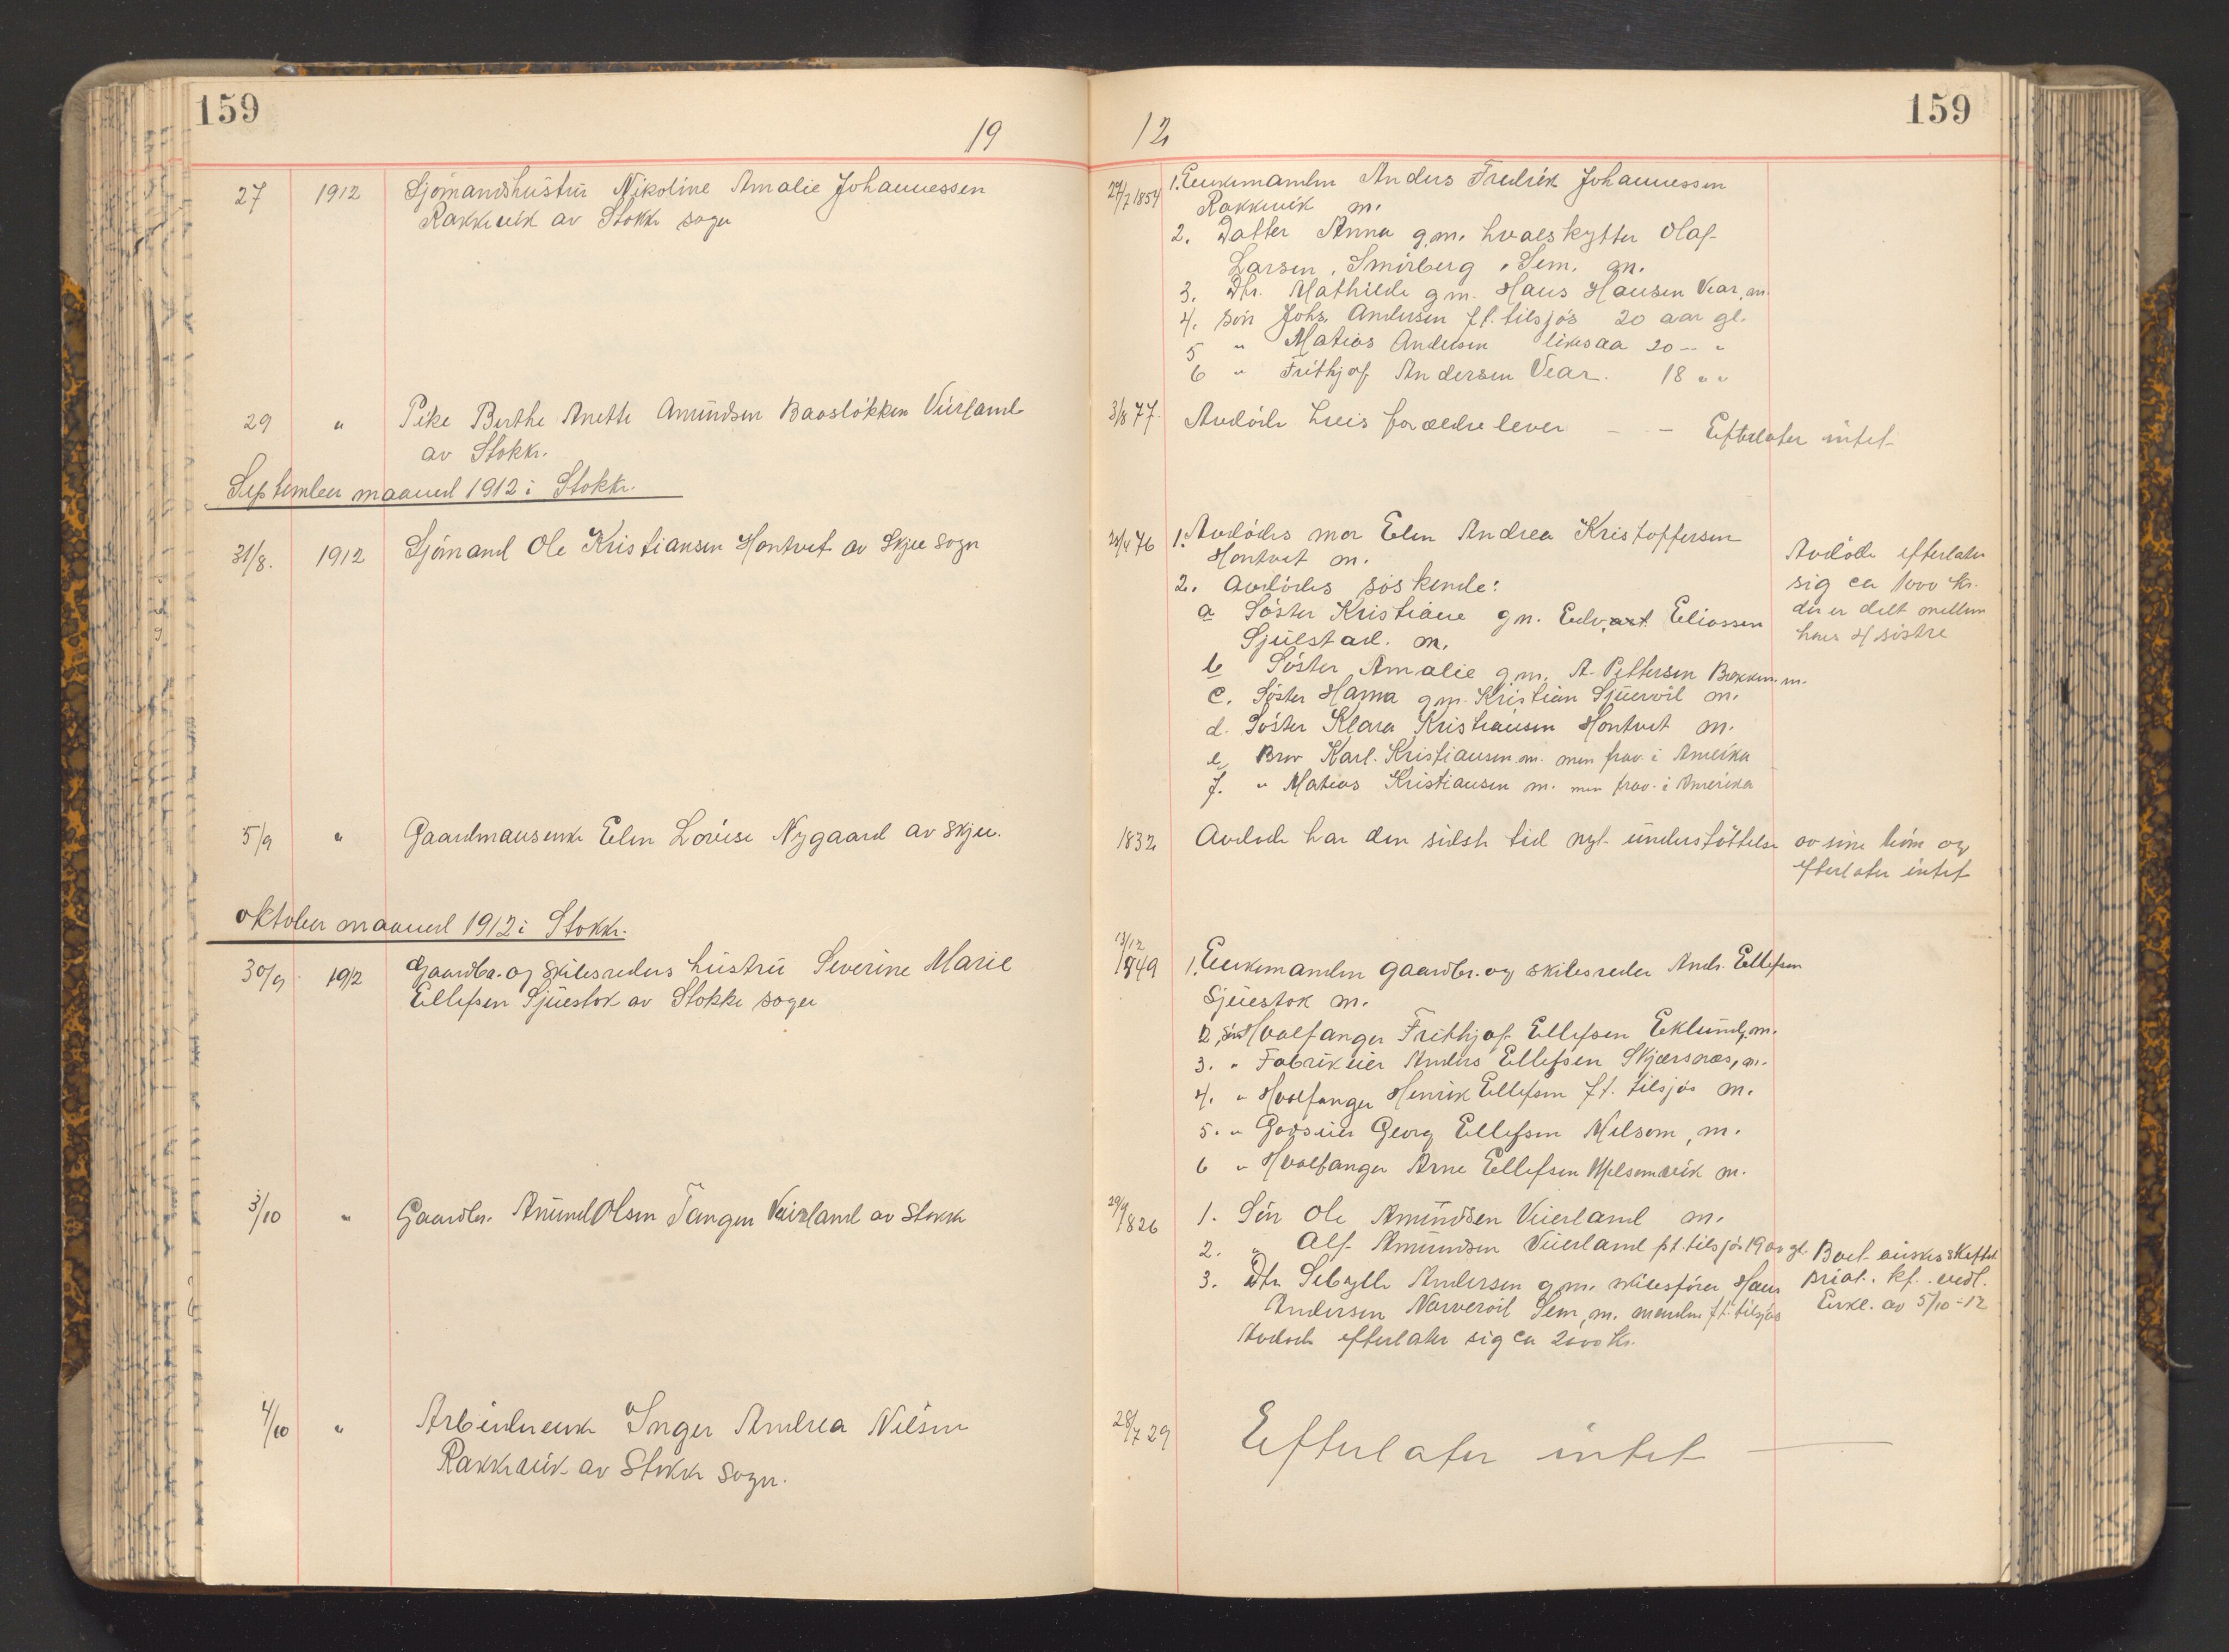 159
19
27 1912 Sjømandshustru Nikoline Amalie Johannessen
Rakkevik av Stokke sogn
29 " Pike Berthe Anette Amundsen Baasløkken Veierland
av Stokke.
September maaned 1912 i Stokke.
31/8. 1912 Sjømand Ole Kristiansen Hontvet av Skjee sogn
5/9 " Gaardmansenke Elen Lovise Nygaard av Skjee.
Oktober maaned 1912 i Stokke.
30/9 1912 Gaardbr. og Skibsreders hustru Severine Marie
Ellefsen Sjuestok av Stokke sogn
3/10 " Gaardbr. Anund Olsen Tangen Veierland av Stokke
4/10 " Arbeiderenke Inger Andrea Nilsen
Rakkevik av Stokke sogn.
12
159
27/7 1854 1. Enkemanden Anders Fredrik Johannessen
Rakkevik m.
2. Datter Anna g.m. hvalskytter Olaf
Larsen, Smirberg, Sem. m.
3. Dtr. Mathilde g.m. Hans Hansen Vear, m.
4. Søn Johs. Andersen f.t. tilsjøs 20 aar gl.
5 " Matias Andersen likesaa 20 — "
6 " Frithjof Andersen Vear. 18 " "
3/8 77. Avdøde hvis forældre lever — — Efterlater intet
24/4 76 1. Avdødes mor Elen Andrea Kristoffersen
Hontvet m.
2. Avdødes søskende:
a Søster Kristiane gm. Edvart Eliassen
Sjuestad. m.
b Søster Amalie g.m. A. Pettersen Bakken m.
c. Søster Hanna g.m. Kristian Sjuerød m.
d. Søster Klara Kristiansen Hontvet m.
e, Bror Karl Kristiansen m. men frav. i Amerika
f. " Matias Kristiansen m. men frav. i Amerika
Avdøde efterlater
sig ca 1000 kr.
der er delt mellem
hans 4 søstre
1832 Avdøde har den sidste tid nyt understøttelse av sine børn og
efterlater intet
13/12 1849 1. Enkemanden gaardbr. og skibsreder Andr. Ellefsen
Sjuestok m.
2, Søn Hvalfanger Frithjof Ellefsen Eklund, m.
3. " Fabrikeier Anders Ellefsen Skjærsnæs, m.
4. " Hvalfanger Henrik Ellefsen f.t. tilsjøs m.
5. " Godseier Georg Ellefsen Melsom, m.
6 " Hvalfanger Arne Ellefsen Melsomvik m.
29/9 1826 1. Søn Ole Amundsen Veierland m.
2. " Alf Amundsen Veierland p.t. tilsjøs 19 aar gl. Boet ønskes skiftet
3. Dtr. Sibylle Andersen g.m. skibsfører Hans priat. kf. vedl.
Andersen Narverød Sem, m. manden f.t. tilsjøs Erkl. av 5/10-12
Avdøde efterlater sig ca 2000 kr.
28/7 29 Efterlater intet —